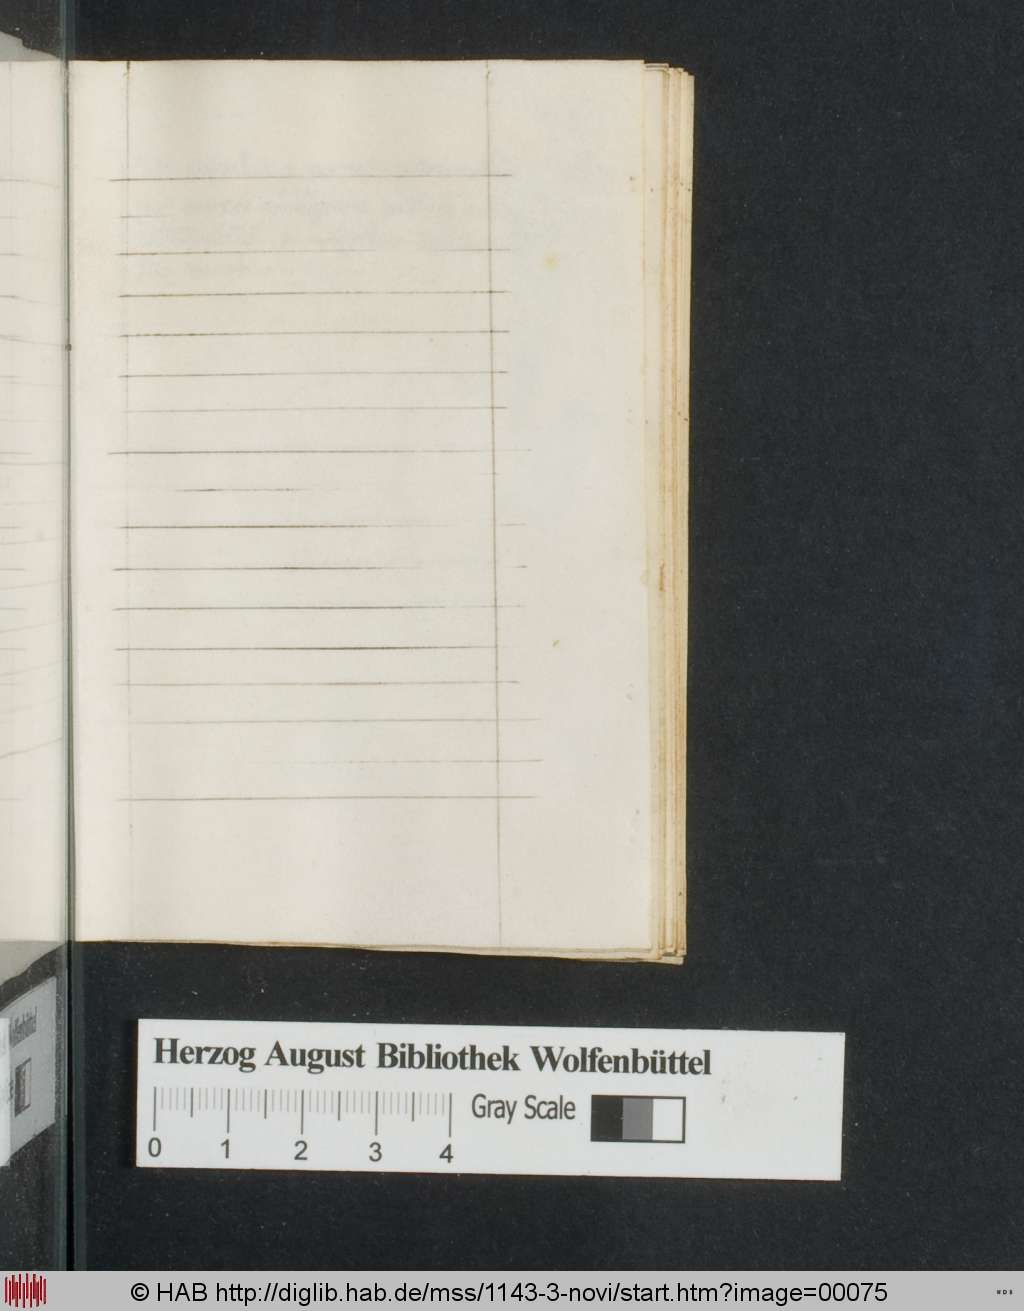 Herzog August Bibliothek Wolfenbüttel
Gray Scale
0 1 2 3 4
© HAB http://diglib.hab.de/mss/1143-3-novi/start.htm?image=00075